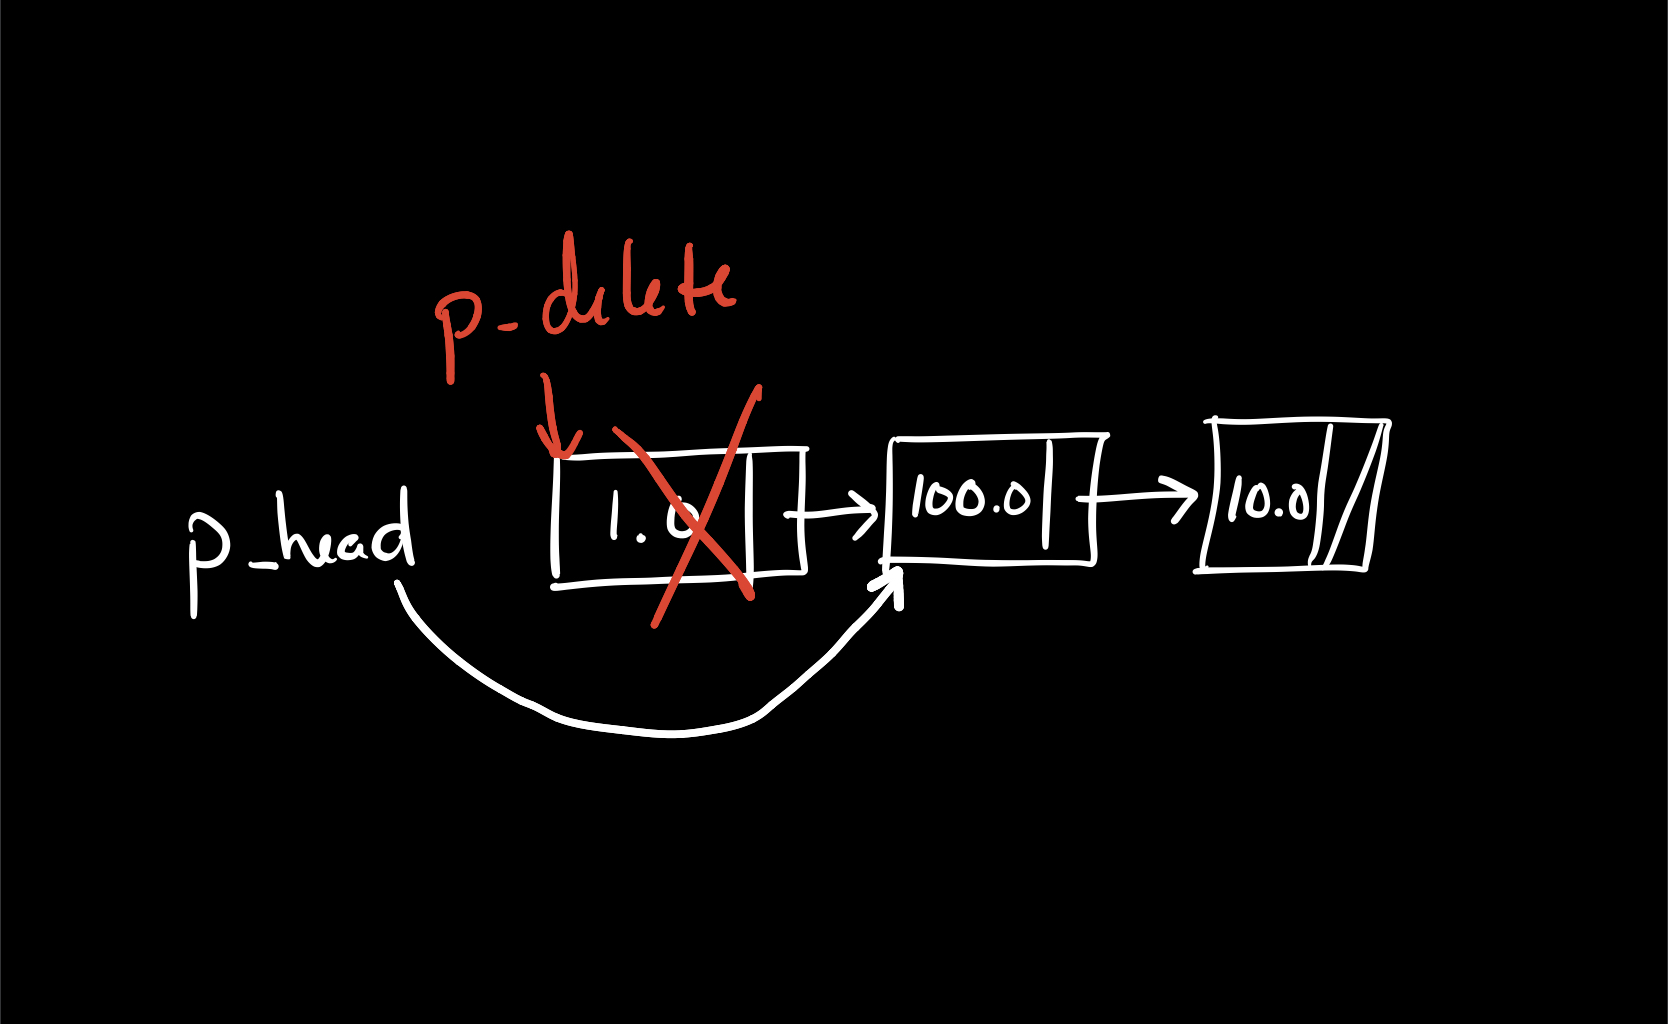 p_delete
p_head
1.0
100.0
10.0